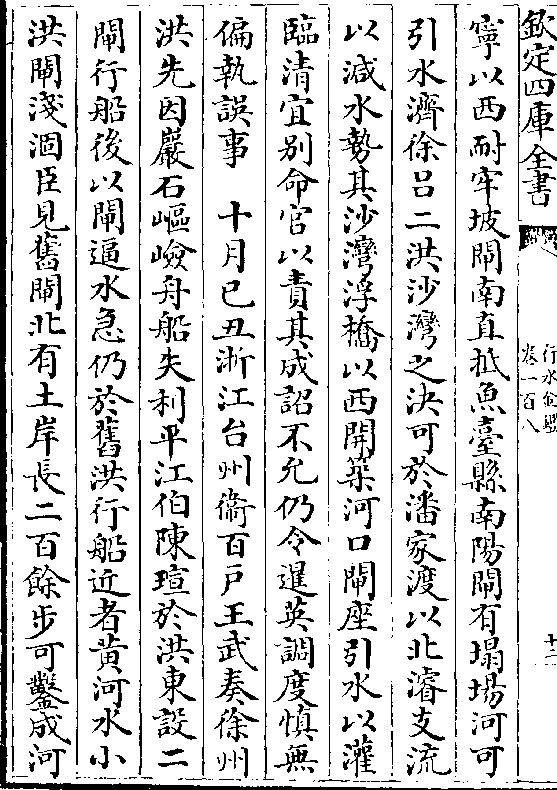 欽定四庫全書
行水金鑑
卷一百八
十二
寧以西耐牢坡閘南直抵魚臺縣南陽閘有塌場河可
引水濟徐呂二洪沙灣之決可於潘家渡以北濬支流
以減水勢其沙灣浮橋以西開築河口閘座引水以灌
臨清宜别命官以責其成詔不允仍令暹英調度慎無
偏執誤事 十月己丑浙江台州衛百戸王武奏徐州
洪先因巖石嶇嶮舟船失利平江伯陳瑄於洪東設二
閘行船後以閘逼水急仍於舊洪行船近者黄河水小
洪閘淺涸臣見舊閘北有土岸長二百餘步可鑿成河